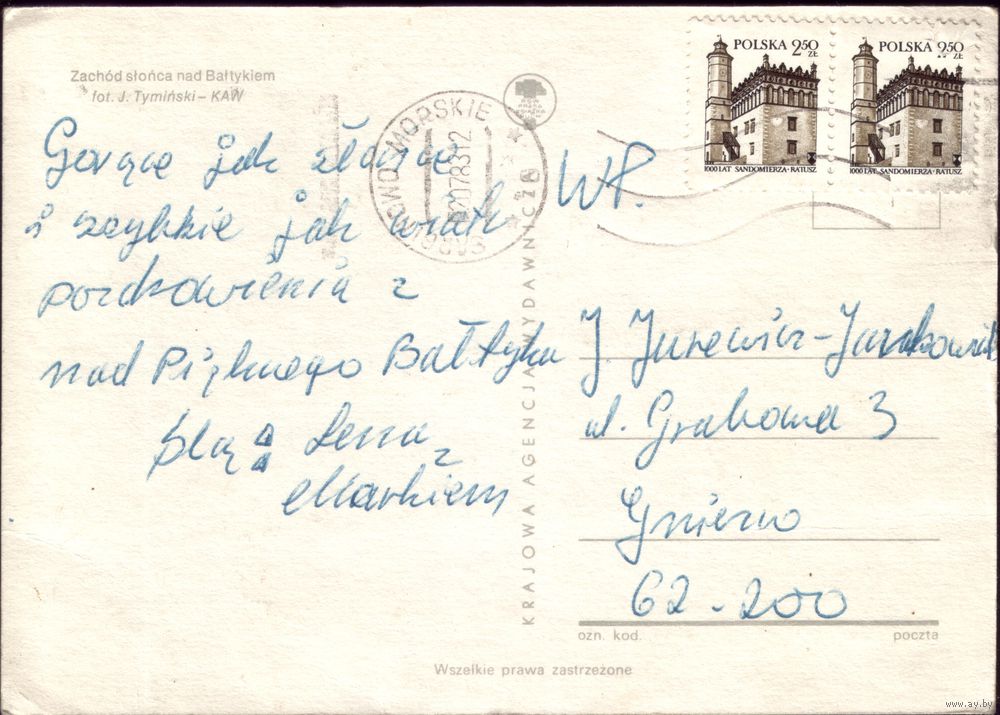 Zachód słońca nad Bałtykiem
fot. J. Tymiński – KAW
Gorące jak słońce
i szybkie jak wiatr
pozdrowienia z
nad Pięknego Bałtyku
ślą: Lena
z
Markiem
KRAJOWA AGENCJA WYDAWNICZA
POLSKA 2,50 ZŁ
1000 LAT SANDOMIERZA - RATUSZ
POLSKA 2,50 ZŁ
1000 LAT SANDOMIERZA - RATUSZ
WP.
J. Jurewicz-
ul. Grabowa 3
Gniezno
62-200
ozn. kod. poczta
Wszelkie prawa zastrzeżone
www.ay.by